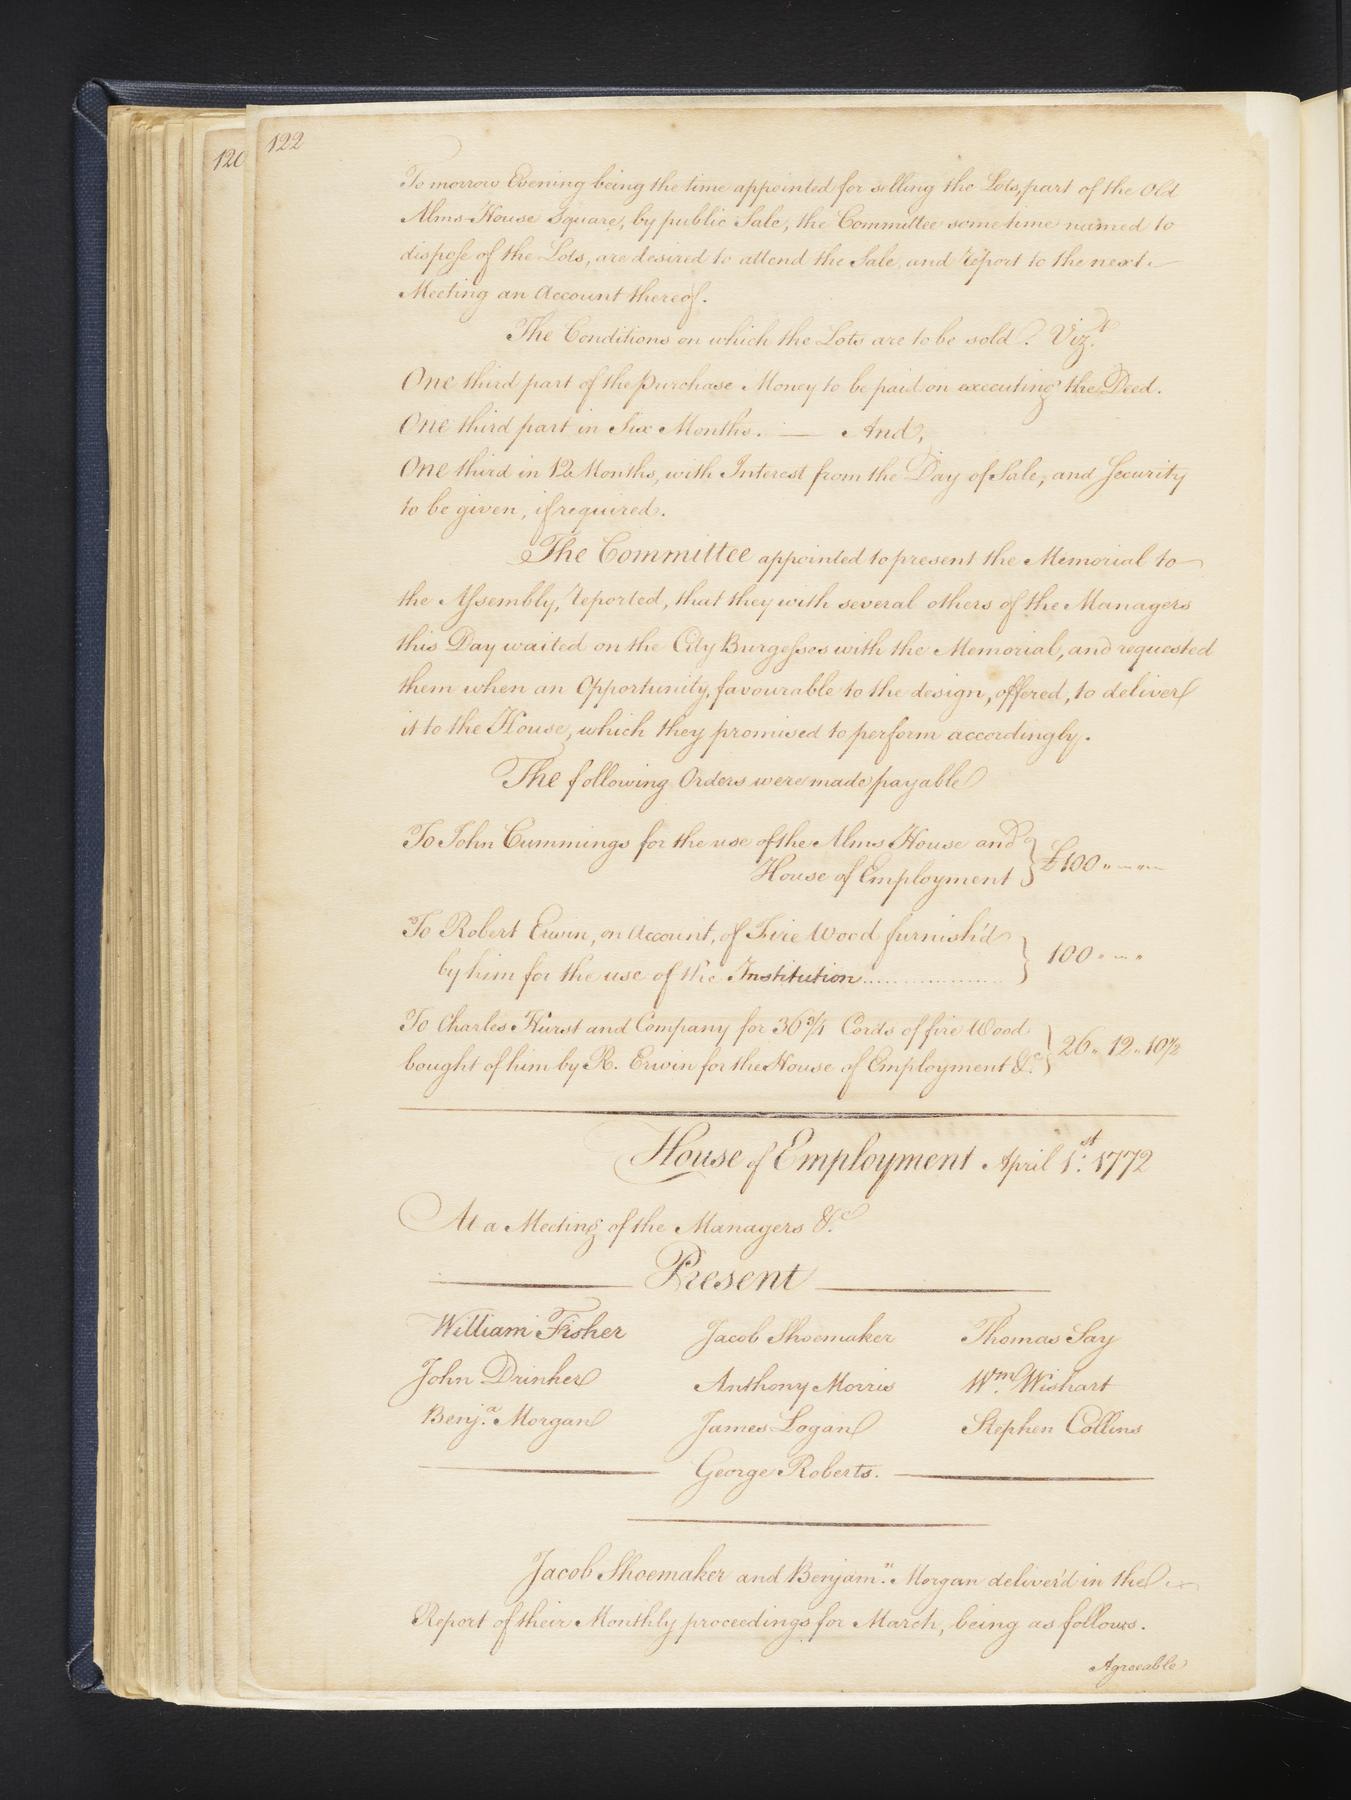 120
122
To morrow Evening being the time appointed for selling the Lots, part of the Old
Alms-House Square, by public Sale, the Committee some time named to
dispose of the Lots, are desired to attend the Sale, and report to the next
Meeting an Account thereof.
The Conditions on which the Lots are to be sold. Vizt.
One third part of the Purchase Money to be paid on executing the Deed.
One third part in Six Months. — And,
One third in 12 Months, with Interest from the Day of Sale, and Security
to be given, if required.
The Committee appointed to present the Memorial to
the Assembly, reported, that they with several others of the Managers
this Day waited on the City Burgesses with the Memorial, and requested
them when an Opportunity, favourable to the design, offered, to deliver
it to the House, which they promised to perform accordingly.
The following Orders were made payable
To John Cummings for the use of the Alms House and
House of Employment } £100 " — " —
To Robert Erwin, on Account, of Fire Wood furnish'd
by him for the use of the Institution.................. } 100 " — "
To Charles Hurst and Company for 36 3/4 Cords of fire Wood
bought of him by R. Erwin for the House of Employment &c. } 26 " 12 " 10½
House of Employment April 1st. 1772
At a Meeting of the Managers &c.
Present
William Fisher Jacob Shoemaker Thomas Say
John Drinker Anthony Morris Wm. Wishart
Benja. Morgan James Logan Stephen Collins
George Roberts.
Jacob Shoemaker and Benjamn. Morgan deliver'd in the
Report of their Monthly proceedings for March, being as follows.
Agreeable